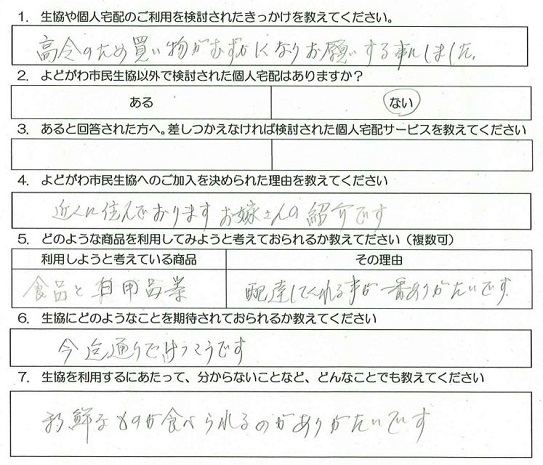 1. 生協や個人宅配のご利用を検討されたきっかけを教えてください。
高令のため買い物がむずかしくなりお願いする事にしました。
2. よどがわ市民生協以外で検討された個人宅配はありますか?
ある ない
3. あると回答された方へ。差しつかえなければ検討された個人宅配サービスを教えてください
4. よどがわ市民生協へのご加入を決められた理由を教えてください
近くに住んでおりますお嫁さんの紹介です
5. どのような商品を利用してみようと考えておられるか教えてださい(複数可)
利用しようと考えている商品 その理由
食品と日用品 配達してくれる事が一番ありがたいです。
6. 生協にどのようなことを期待されておられるか教えてください
今迄通りでけっこうです
7. 生協を利用するにあたって、分からないことなど、どんなことでも教えてください
新鮮なものが食べられるのがありがたいです